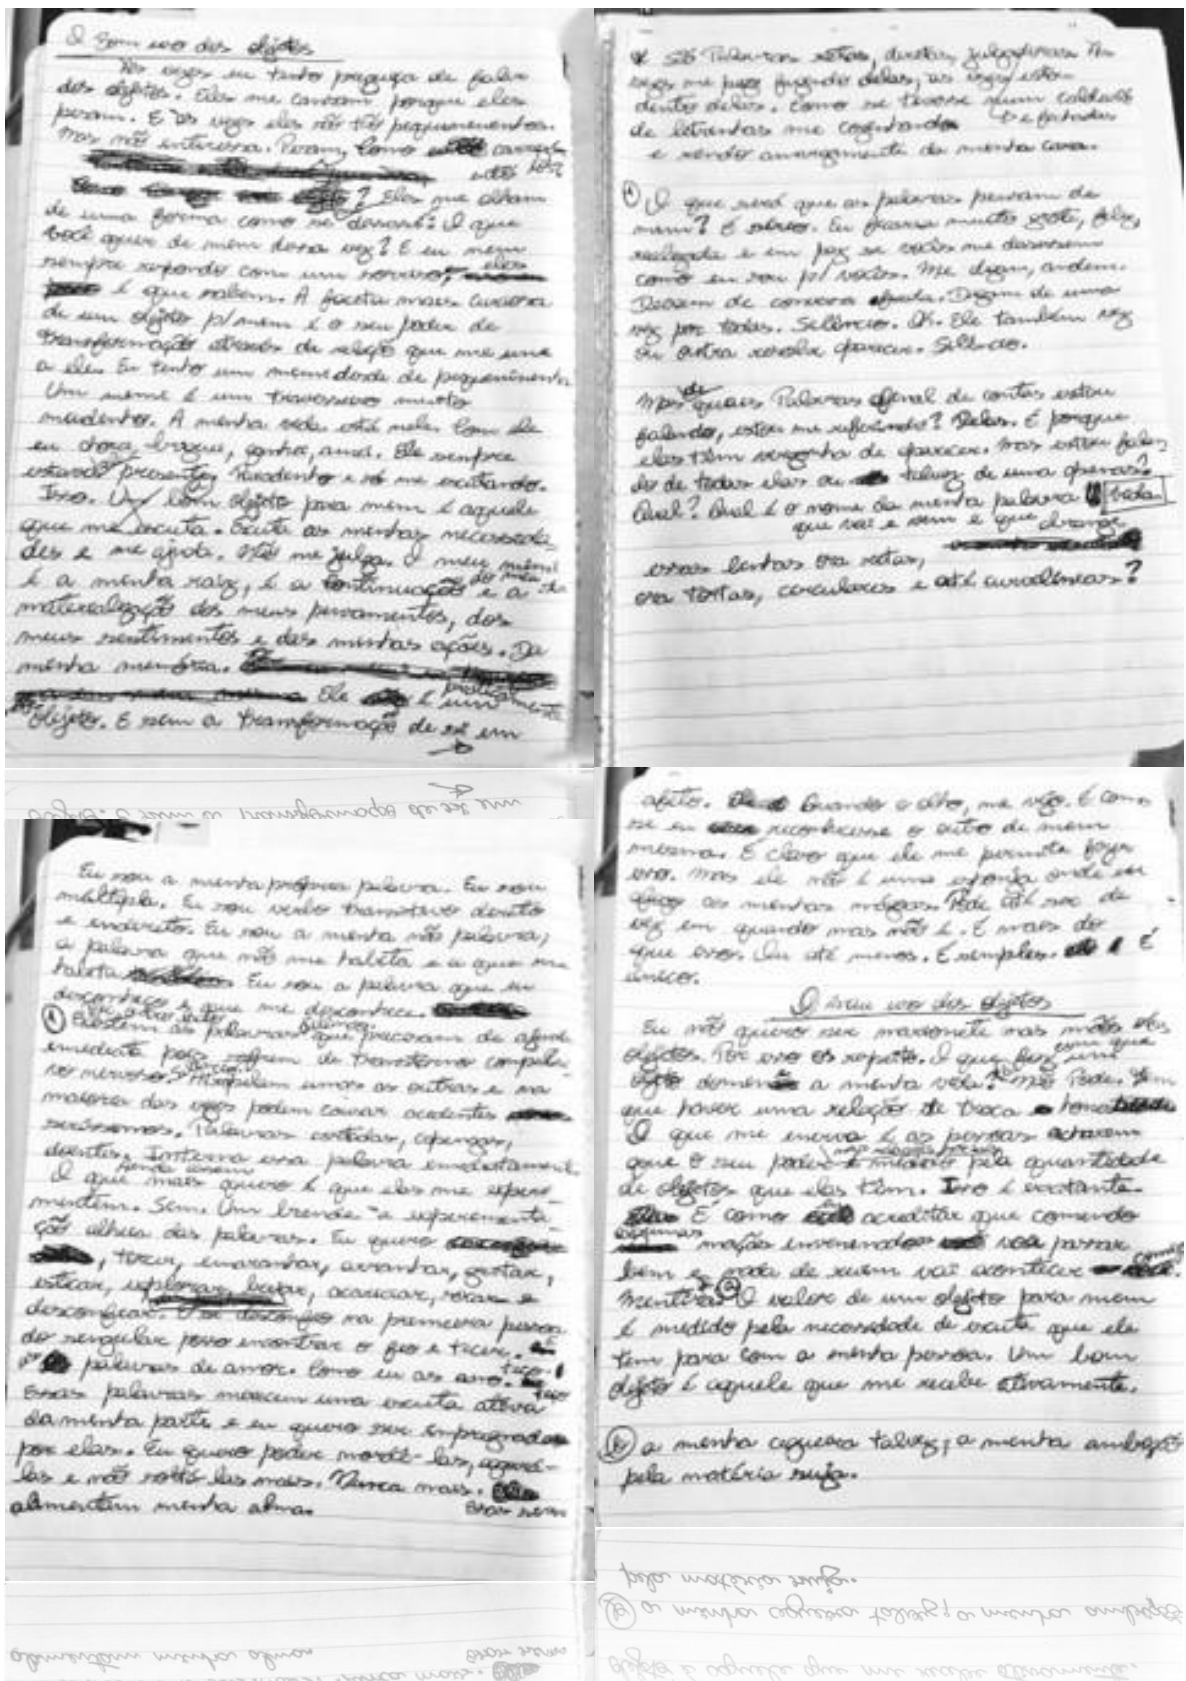 O Bom uso dos objetos
Às vezes eu tenho preguiça de falar
dos objetos. Eles me cansam porque eles
pesam. E às vezes eles são tão pequenininhos.
Mas não interessa. Pesam, Como
? Eles me olham
de uma forma como se dissessem: O que
você quer de mim dessa vez? E eu nem
sempre respondo com um sorriso, eles
é que sabem. A faceta mais curiosa
de um objeto p/ mim é o seu poder de
transformação através da relação que me une
a ele. Eu tenho um meme desde de pequenininha
Um meme é um travesseiro muito
molento. A minha vida está nele. Com ele
eu choro, brinco, sonho, amei. Ele sempre
estando presente, me escutando.
Isso. Um bom objeto para mim é aquele
que me escuta. Escuta as minhas necessida-
des e me ajuda. Não me julga. O meu meme
é a minha raiz, é a continuação e a
materialização dos meus pensamentos, dos
meus sentimentos e das minhas ações. Da
minha memória.
Ele é um
objeto. E sem a transformação de si em
→
São Palavras retas, diretas, julgadoras. Às
vezes me pego fugindo delas, às vezes estou
dentro delas. Como se tivesse num caldeirão
de letrinhas me cozinhando
e rindo amargamente da minha cara.
O que será que as palavras pensam de
mim? É sério. Eu ficaria muito grata, feliz,
realizada e em paz se vocês me dissessem
como eu sou p/ vocês. Me digam, andem.
Deixem de conversa fiada. Digam de uma
vez por todas. Silêncio. Ok. Ele também vez
ou outra resolve aparecer. Silêncio.
Mas de quais Palavras afinal de contas estou
falando, estou me referindo? Delas. É porque
elas têm vergonha de aparecer. Mas estou falan-
do de todas elas ou talvez de uma apenas?
Qual? Qual é o nome da minha palavra
que vai e vem e que abrange
essas linhas ora retas,
ora tortas, circulares e até curvilíneas?
Eu sou a minha própria palavra. Eu sou
múltipla. Eu sou verbo transitivo direto
e indireto. Eu sou a minha não palavra,
a palavra que não me habita e a que me
habita. Eu sou a palavra que eu
desconheço e que me desconhece.
Existem as palavras que precisam de ajuda
imediata pois sofrem de transtorno compulsi-
vo nervoso. Atropelam umas as outras e na
maioria das vezes podem causar acidentes
seríssimos. Palavras cortadas, capengas,
doentes. Interna essa palavra imediatamente.
O que mais quero é que elas me experi-
mentem. Sim. Um brinde a experimenta-
ção alheia das palavras. Eu quero
, torcer, emaranhar, arranhar, gritar,
esticar, explorar, beijar, acariciar, roçar e
desconfiar. na primeira pessoa
do singular posso encontrar o fio e tecer.
palavras de amor. Como eu as amo.
Essas palavras merecem uma escuta ativa
da minha parte e eu quero ser impregnada
por elas. Eu quero poder mordê-las, agarrá-
las e não soltá-las mais. Nunca mais.
Essas sim
alimentam minha alma.
afeto. Quando o olho, me vejo. É como
se eu reconhecesse o outro de mim
mesma. É claro que ele me permite fazer
isso. Mas ele não é uma esponja onde eu
afogo as minhas mágoas. Pode até ser de
vez em quando mas não é. É mais do
que isso. Ou até menos. É simples. É
único.
O mau uso dos objetos
Eu não quero ser marionete nas mãos dos
objetos. Por isso os respeito. O que faz com que um
objeto domine a minha vida? Não Pode. Tem
que haver uma relação de troca
O que me enerva é as pessoas acharem
que o seu poder é medido pela quantidade
de objetos que elas têm. Isso é irritante.
É como acreditar que comendo
algumas maçãs envenenadas vou passar
bem e nada de ruim vai acontecer comigo.
Mentira. O valor de um objeto para mim
é medido pela necessidade de escuta que ele
tem para com a minha pessoa. Um bom
objeto é aquele que me recebe ativamente.
a minha cegueira talvez; a minha ambição
pela matéria suja.